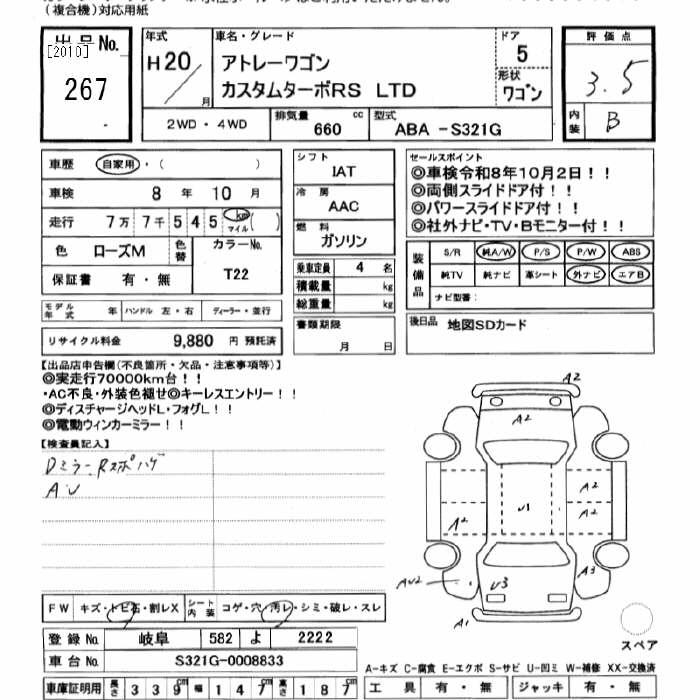 (複合機)対応用紙
出品No.
[2010]
267
年式
H20
月
車名・グレード
アトレーワゴン
カスタムターボRS LTD
ドア
5
形状
ワゴン
評価点
3.5
内装
B
2WD・4WD
排気量
660 cc
型式
ABA -S321G
車歴 自家用・( )
車検 8 年 10 月
走行 7万 7千 5 4 5 km マイル ( )
色 ローズM 色替 カラーNo.
T22
保証書 有・無
シフト
IAT
冷房
AAC
燃料
ガソリン
乗車定員 4 名
積載量 kg
総重量 kg
書類期限
月 日
セールスポイント
◎車検令和8年10月2日!!
◎両側スライドドア付!!
◎パワースライドドア付!!
◎社外ナビ・TV・Bモニター付!!
装備品
S/R 純A/W P/S P/W ABS
純TV 純ナビ 革シート 外ナビ エアB
ナビ型番:
モデル年式 年 ハンドル 左・右 ディーラー・並行
リサイクル料金 9,880 円 預託済
後日品 地図SDカード
【出品店申告欄(不良箇所・欠品・注意事項等)】
◎実走行70000km台!!
・AC不良・外装色褪せ◎キーレスエントリー!!
◎ディスチャージヘッドL・フォグL!!
◎電動ウィンカーミラー!!
【検査員記入】
DミラーRスポハゲ
A・U
A2
A2
A2
A2
A2
U1
AU2
U3
A3
A1
スペア
FW キズ・トビ石・割レX シート内装 コゲ・穴・汚レ・シミ・破レ・スレ
登録No. 岐阜 582 よ 2222
車台No. S321G-0008833
車庫証明用 長さ 339cm 幅 147cm 高さ 187cm
A-キズ C-腐食 E-エクボ S-サビ U-凹ミ W-補修 XX-交換済
工具 有・無 ジャッキ 有・無